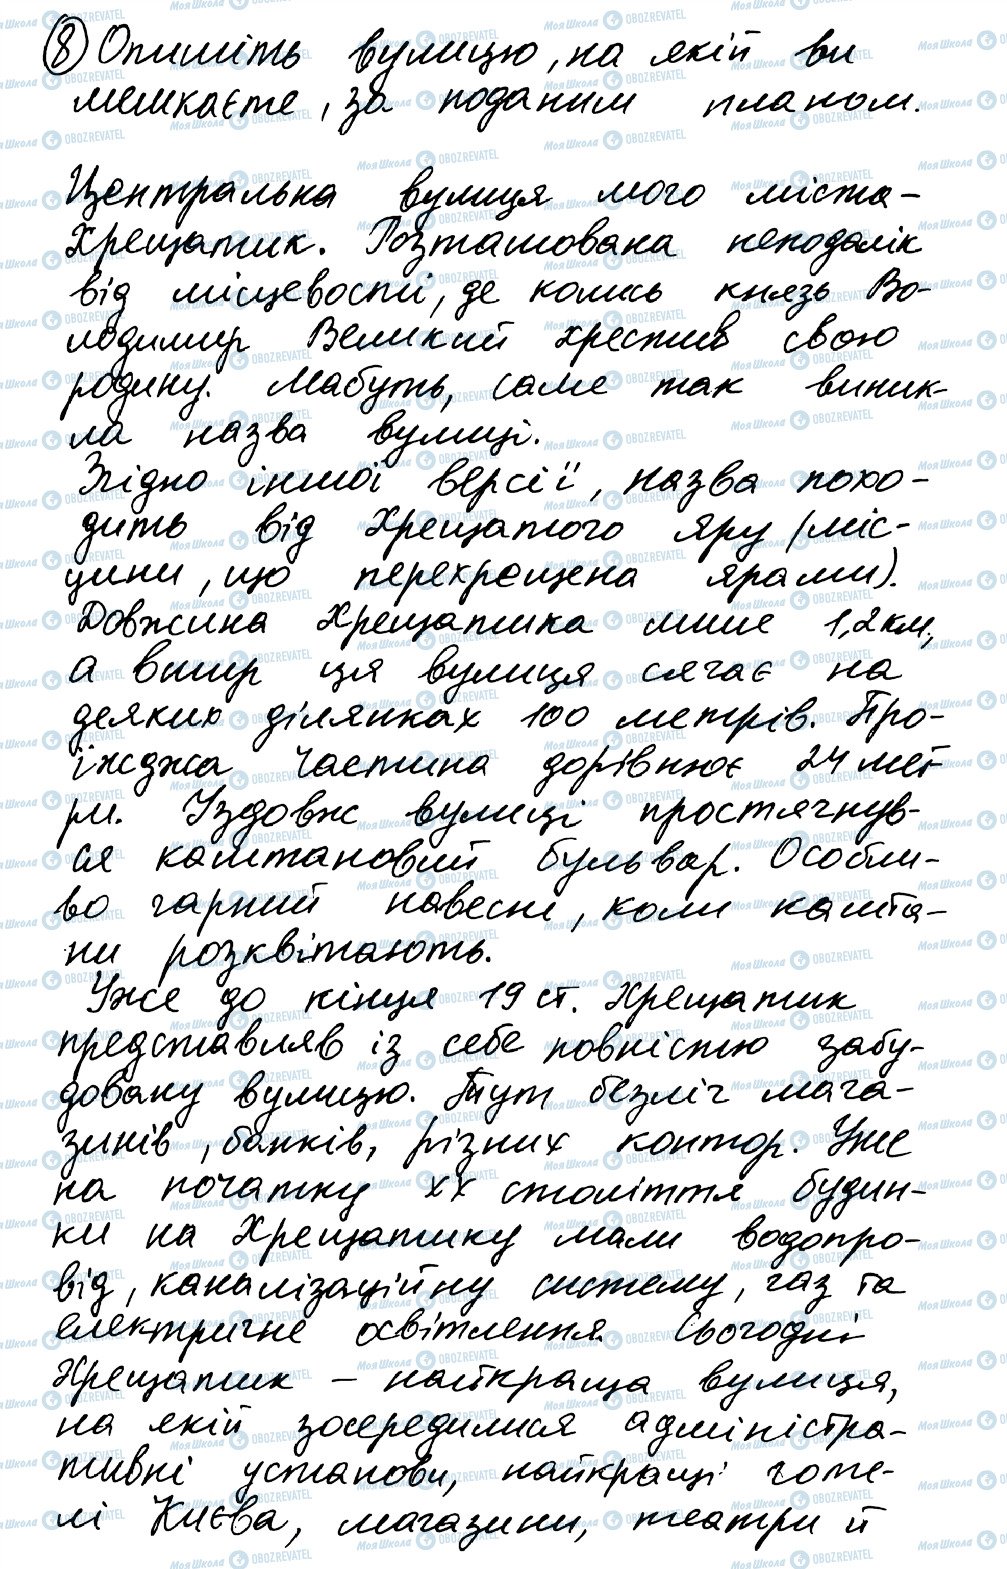 8 Опишіть вулицю, на якій ви
мешкаєте, за поданим планом.
Центральна вулиця мого міста-
Хрещатик. Розташована неподалік
від місцевості, де колись князь Во-
лодимир Великий хрестив свою
родину. Мабуть, саме так виник-
ла назва вулиці.
Згідно іншої версії, назва похо-
дить від Хрещатого яру (міс-
цини, що перехрещена ярами).
Довжина Хрещатика лише 1,2 км,
а вшир ця вулиця сягає на
деяких ділянках 100 метрів. Про-
їжджа частина дорівнює 24 мет
ри. Уздовж вулиці простягнув-
ся каштановий бульвар. Особли-
во гарний навесні, коли кашта-
ни розквітають.
Уже до кінця 19 ст. Хрещатик
представляв із себе повністю забу-
довану вулицю. Тут безліч мага-
зинів, банків, різних контор. Уже
на початку ХХ століття будин-
ки на Хрещатику мали водопро-
від, каналізаційну систему, газ та
електричне освітлення. Сьогодні
Хрещатик – найкраща вулиця,
на якій зосередилися адміністра-
тивні установи, найкращі готе-
лі Києва, магазини, театри й